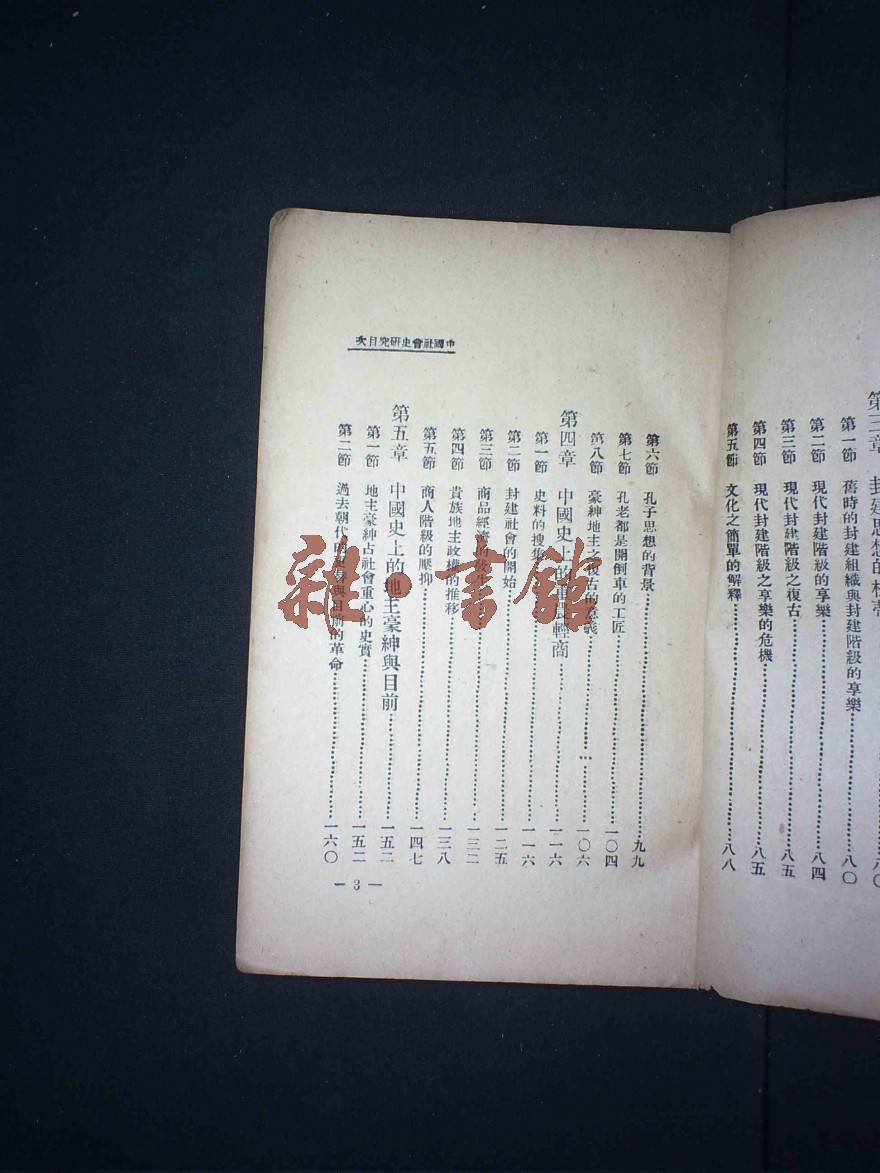 第三章 封建思想的
第一節 舊時的封建組織與封建階級的享樂……八〇
第二節 現代封建階級的享樂……八四
第三節 現代封建階級之復古……八五
第四節 現代封建階級之享樂的危機……八五
第五節 文化之簡單的解釋……八八
中國社會史研究目次
第六節 孔子思想的背景……九九
第七節 孔老都是開倒車的工匠……一〇四
第八節 豪紳地主之復古的意義……一〇六
第四章 中國史上的重農輕商……一一六
第一節 史料的搜集……一一六
第二節 封建社會的開始……一二五
第三節 商品經濟的發生……一三二
第四節 貴族地主政權的推移……一三八
第五節 商人階級的壓抑……一四七
第五章 中國史上的地主豪紳與目前……一五二
第一節 地主豪紳占社會重心的史實……一五二
第二節 過去朝代的更替與目前的革命……一六〇
— 3 —
雜·書館